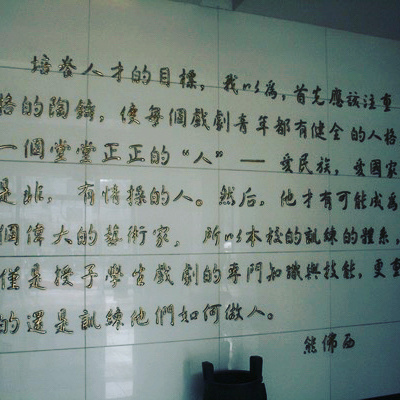 培养人才的目標，我以為，首先應該注重
格的陶鑄，使每個戲劇青年都有健全的人格
一個堂堂正正的“人”——愛民族，愛國家
是非，有情操的人。然后，他才有可能成為
個偉大的藝術家，所以本校的訓練的體系，
僅是授予學生戲劇的專門知識與技能，更重
的還是訓練他們如何做人。
熊佛西